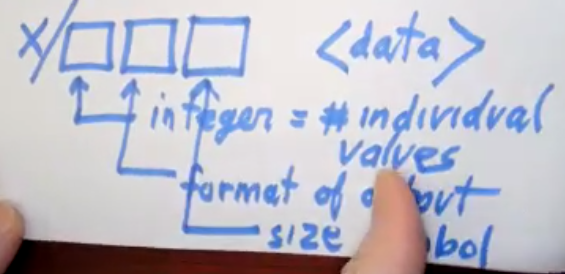 X/ <data>
integer = # individual
values
format of output
size symbol